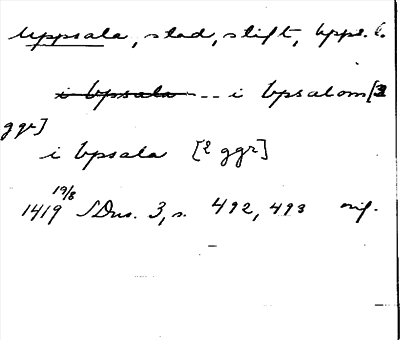 Uppsala, stad, stift, Upps. l.
i Upsala --- i Upsalom [3
ggr]
i Upsala [2 ggr]
1419 19/8 SDns. 3, s. 492, 493 orig.